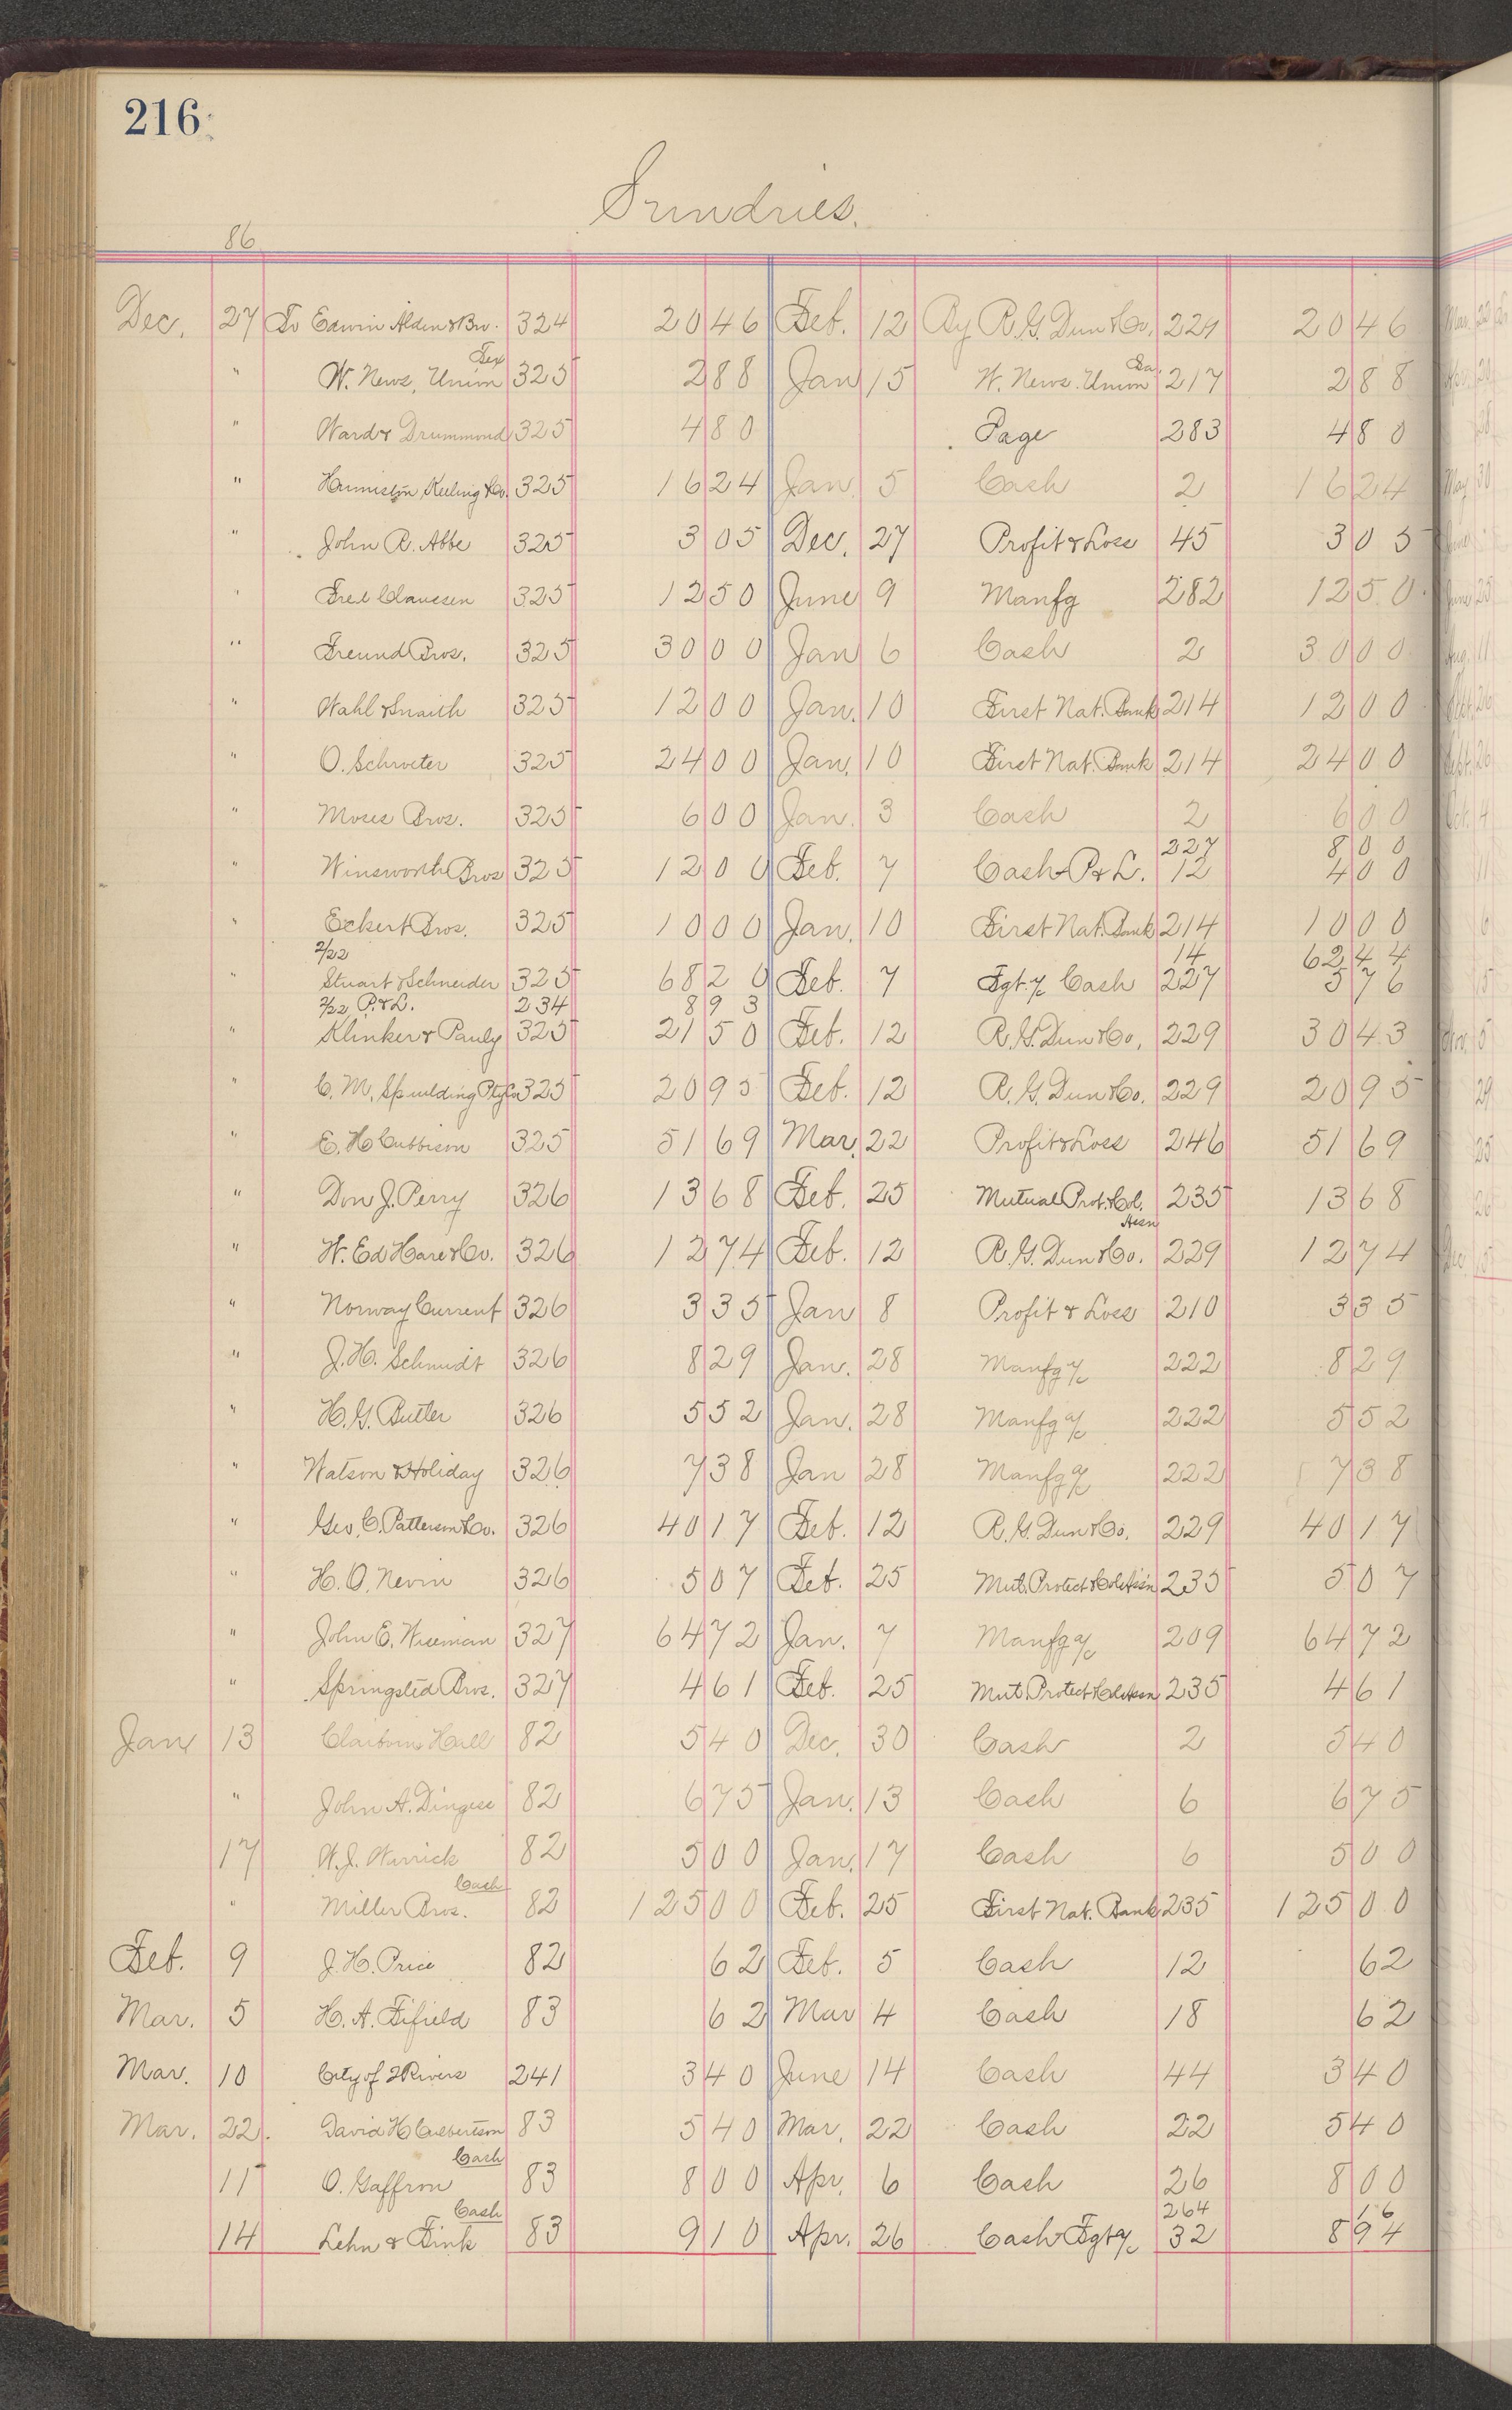 216
Sundries.
86
Dec. 27 To Edwin Alden & Bro. 324 20 46 Feb. 12 By R. G. Dun & Co. 229 20 46
" W. News. Union Tex 325 2 88 Jan 15 W. News. Union 217 2 88
" Ward & Drummond 325 4 80 Page 283 4 80
" Humiston, Keeling & Co. 325 16 24 Jan. 5 Cash 2 16 24
" John R. Abbe 325 3 05 Dec. 27 Profit & Loss 45 3 05
" Fred Clausen 325 12 50 June 9 Manfg 282 12 50
" Freund Bros. 325 30 00 Jan 6 Cash 2 30 00
" Wahl & Snaith 325 12 00 Jan. 10 First Nat. Bank 214 12 00
" O. Schroeter 325 24 00 Jan. 10 First Nat. Bank 214 24 00
" Moses Bros. 325 6 00 Jan. 3 Cash 2 6 00
227 8 00
" Winsworth Bros 325 12 00 Feb. 7 Cash & P & L. 12 4 00
" Eckert Bros. 325 10 00 Jan. 10 First Nat. Bank 214 10 00
2/22 14 62 44
" Stuart & Schneider 325 68 20 Feb. 7 Fgt. a/c Cash 227 5 76
2/22 P. & L. 234 8 93
" Klinker & Pauly 325 21 50 Feb. 12 R. G. Dun & Co. 229 30 43
" C. M. Spaulding Ptg Co 325 20 95 Feb. 12 R. G. Dun & Co. 229 20 95
" E. H. Cubbison 325 51 69 Mar. 22 Profit & Loss 246 51 69
" Don J. Perry 326 13 68 Feb. 25 Mutual Prot. & Col. Assn 235 13 68
" W. Ed Hare & Co. 326 12 74 Feb. 12 R. G. Dun & Co. 229 12 74
" Norway Current 326 3 35 Jan 8 Profit & Loss 210 3 35
" J. H. Schmidt 326 8 29 Jan. 28 Manfg a/c 222 8 29
" H. G. Butler 326 5 52 Jan. 28 Manfg a/c 222 5 52
" Watson & Holiday 326 7 38 Jan 28 Manfg a/c 222 7 38
" Geo. C. Patterson & Co. 326 40 17 Feb. 12 R. G. Dun & Co. 229 40 17
" H. O. Nevin 326 5 07 Feb. 25 Mut. Protect & Col Ass'n 235 5 07
" John E. Wiseman 327 64 72 Jan. 7 Manfg a/c 209 64 72
" Springsted Bros. 327 4 61 Feb. 25 Mut. Protect & Col Assn 235 4 61
Jan 13 Hall 82 5 40 Dec. 30 Cash 2 5 40
" John A. Dingess 82 6 75 Jan. 13 Cash 6 6 75
17 W. J. Warrick 82 5 00 Jan. 17 Cash 6 5 00
Cash
" Miller Bros. 82 125 00 Feb. 25 First Nat. Bank 235 125 00
Feb. 9 J. H. Price 82 62 Feb. 5 Cash 12 62
Mar. 5 H. A. Fifield 83 62 Mar 4 Cash 18 62
Mar. 10 City of 2 Rivers 241 3 40 June 14 Cash 44 3 40
Mar. 22. David H Culbertson 83 5 40 Mar. 22 Cash 22 5 40
Cash
11 O. Gaffron 83 8 00 Apr. 6 Cash 26 8 00
Cash 264 16
14 Lehn & Fink 83 9 10 Apr. 26 Cash & Fgt a/c 32 8 94